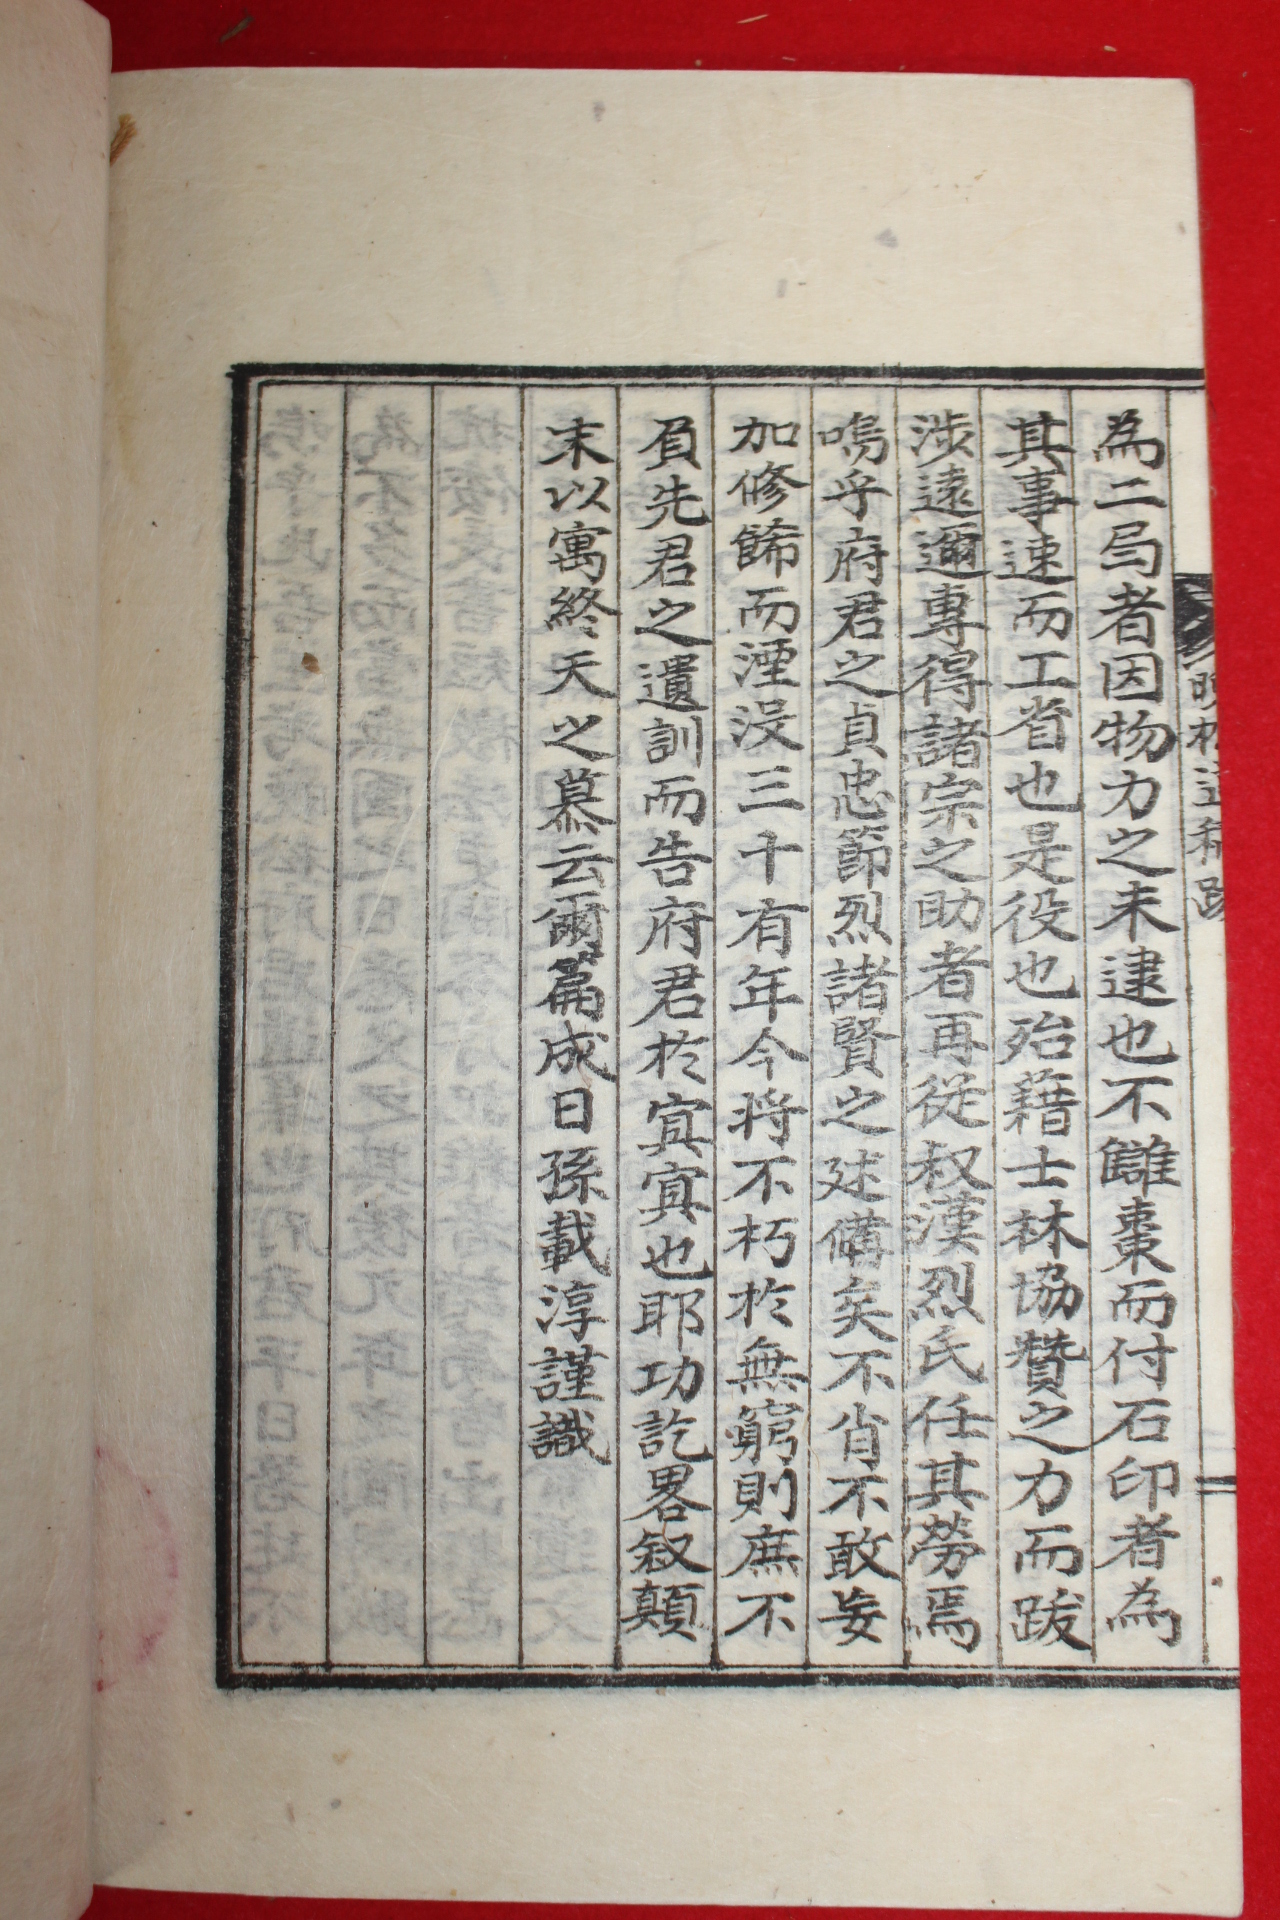 為二局者因物力之未逮也不讎棗而付石印者為
其事速而工省也是役也殆藉士林協贊之力而跋
涉遠邇專得諸宗之助者再従叔漢烈氏任其勞焉
嗚乎府君之貞忠節烈諸賢之述備矣不肖不敢妄
加修餙而湮没三十有年今将不朽於無窮則庶不
負先君之遺訓而告府君於㝠㝠也耶功訖畧叙顛
末以寓終天之慕云爾篇成日孫載淳謹識
遺稿 跋